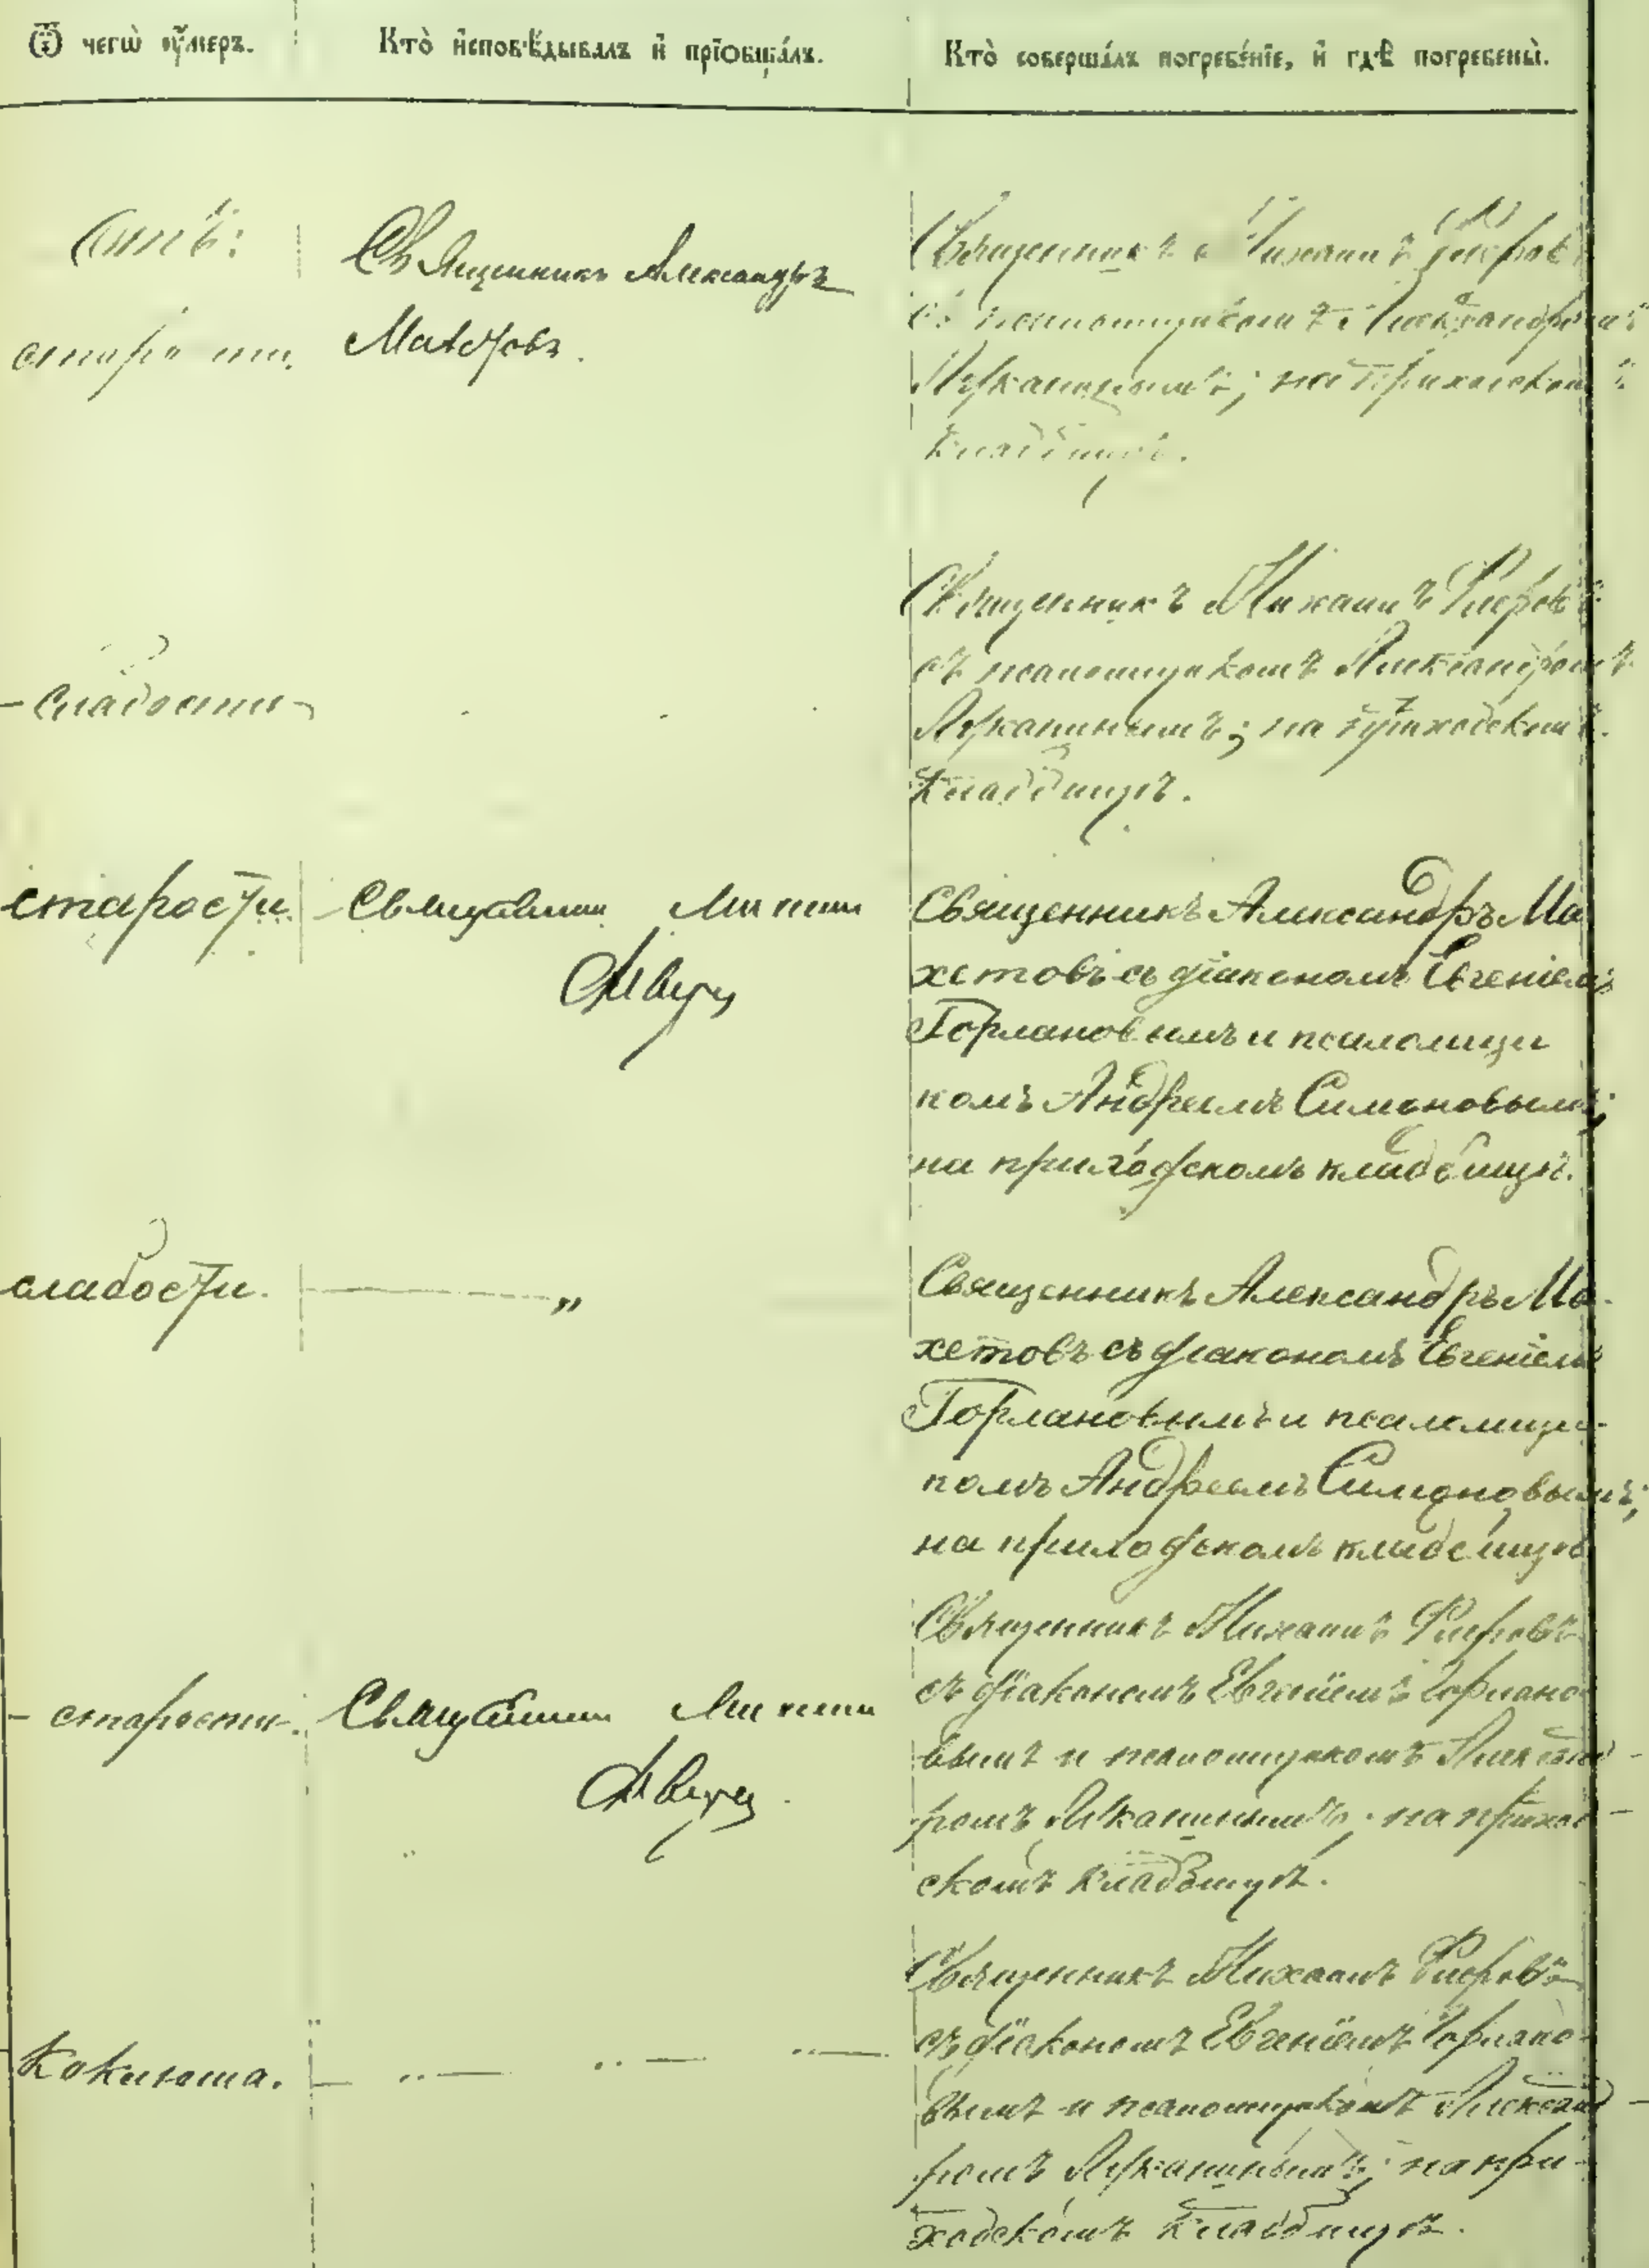 Ѿ чегѡ̀ ᲂу҆́меръ.
Кто̀ и҆сповѣ́дывалъ и҆ прїѻбща́лъ.
Кто̀ соверша́лъ погребе́нїе, и҆ гдѣ̀ погребены̀.
Священникъ Александръ
Священникъ
съ псаломщикомъ Александромъ
на приходскомъ
кладбищѣ.
Священникъ Михаилъ
съ псаломщикомъ Александромъ
на приходскомъ
кладбищѣ.
слабости
старости
Священникъ Михаилъ
Священникъ Александръ Ма
хетовъ съ діакономъ Евгеніемъ
Горлановымъ и псаломщи
комъ Андреемъ Симоновымъ;
на приходскомъ кладбищѣ.
слабости.
„
Священникъ Александръ Ма-
хетовъ съ діакономъ Евгеніемъ
Горлановымъ и псаломщи-
комъ Андреемъ Симоновымъ;
на приходскомъ кладбищѣ
- старости.
Священникъ Михаилъ
Священникъ Михаилъ
съ діакономъ Евгеніемъ Горлано
вымъ и псаломщикомъ Александ-
ромъ на приход-
скомъ кладбищѣ.
Коклюша.
Священникъ Михаилъ
съ діакономъ Евгеніемъ Горлано-
вымъ и псаломщикомъ Александ-
ромъ на при-
ходскомъ кладбищѣ.